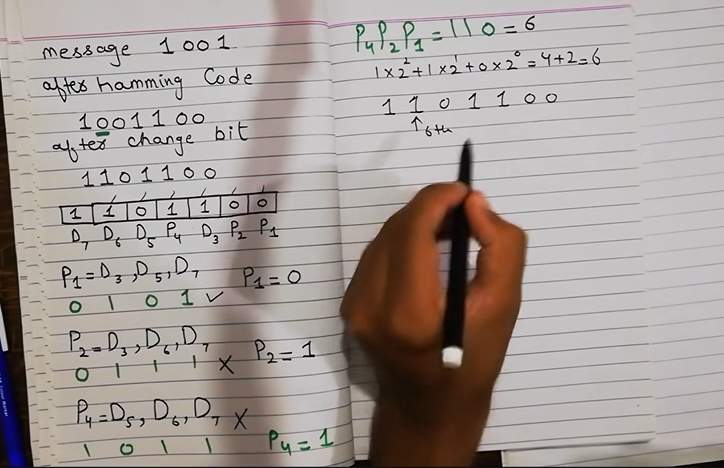 message 1001
after hamming Code
1001100
after change bit
1101100
1 1 0 1 1 0 0
D7 D6 D5 P4 D3 P2 P1
P1=D3,D5,D7 P1=0
0 1 0 1 ✓
P2=D3,D6,D7 P2=1
0 1 1 1 X
P4=D5,D6,D7 X
1 0 1 1 P4=1
P4P2P1=110=6
1×2²+1×2¹+0×2⁰=4+2=6
1 1 0 1 1 0 0
↑6th